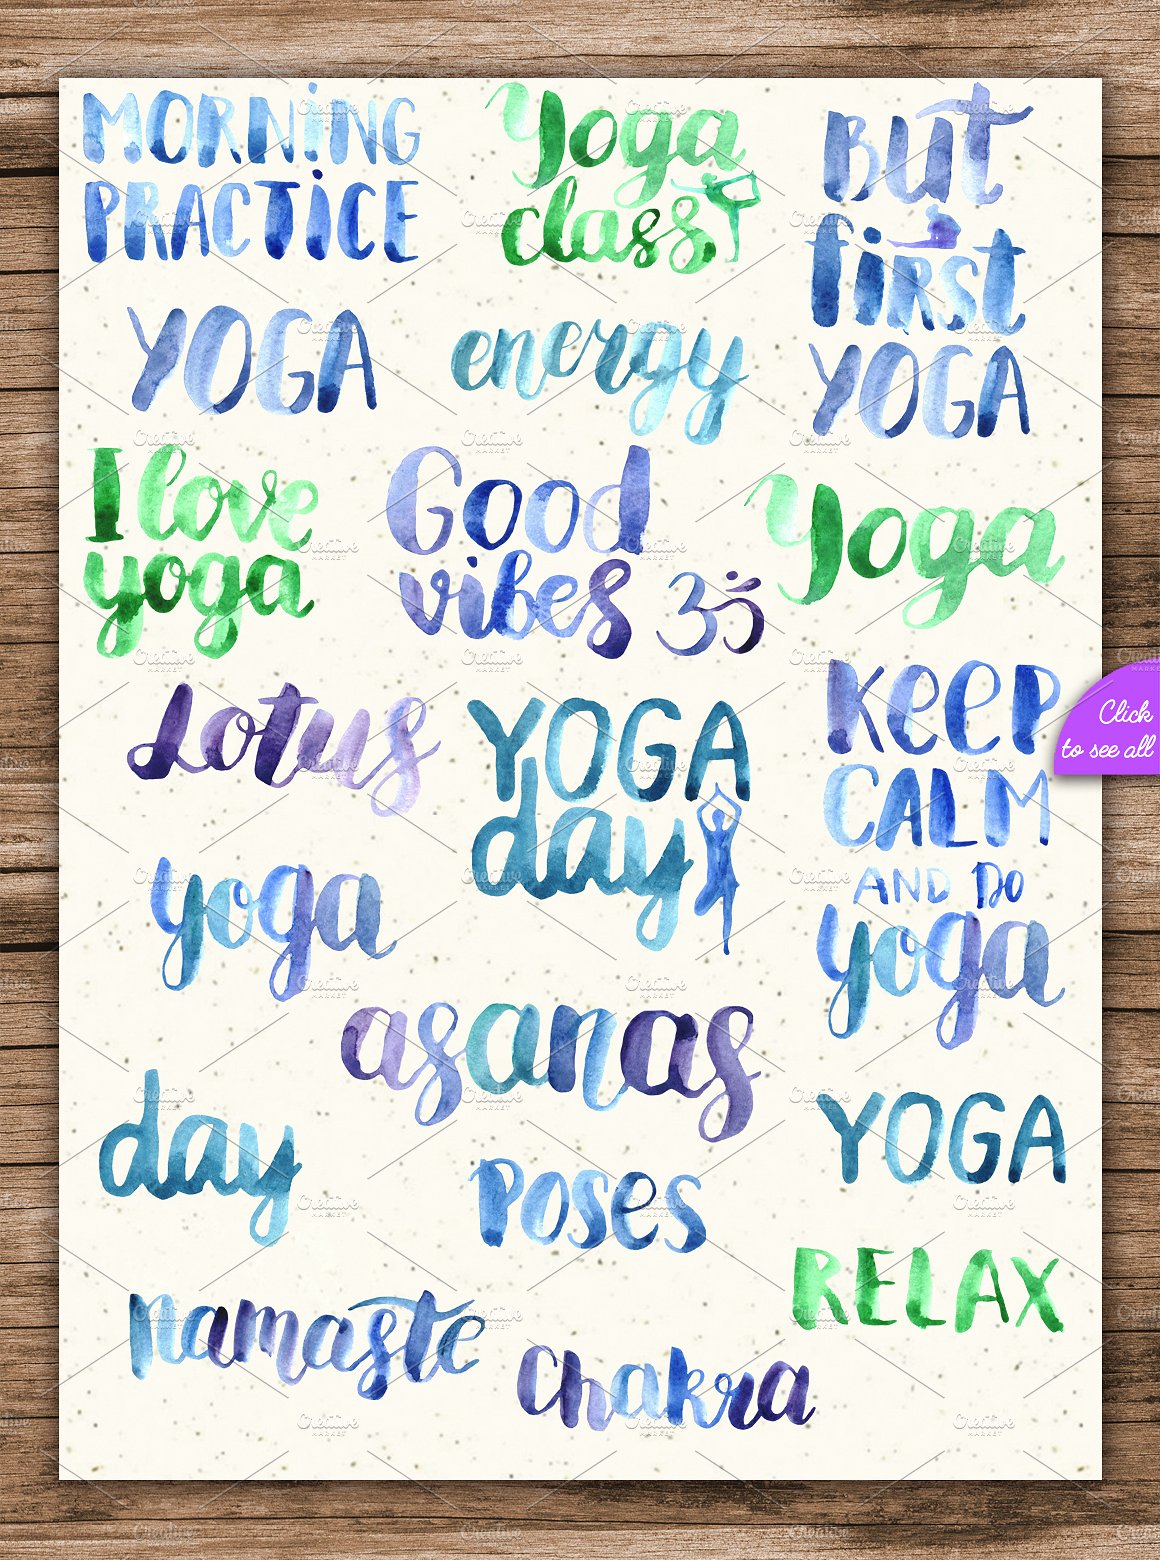 MORNING
PRACTICE
Yoga
class
But
first
YOGA
YOGA
energy
I love
yoga
Good
vibes ॐ
Yoga
Lotus
YOGA
day
Keep
CALM
AND DO
yoga
Click
to see all
yoga
asanas
day
YOGA
Poses
RELAX
Namaste
Chakra
Creative
MARKET